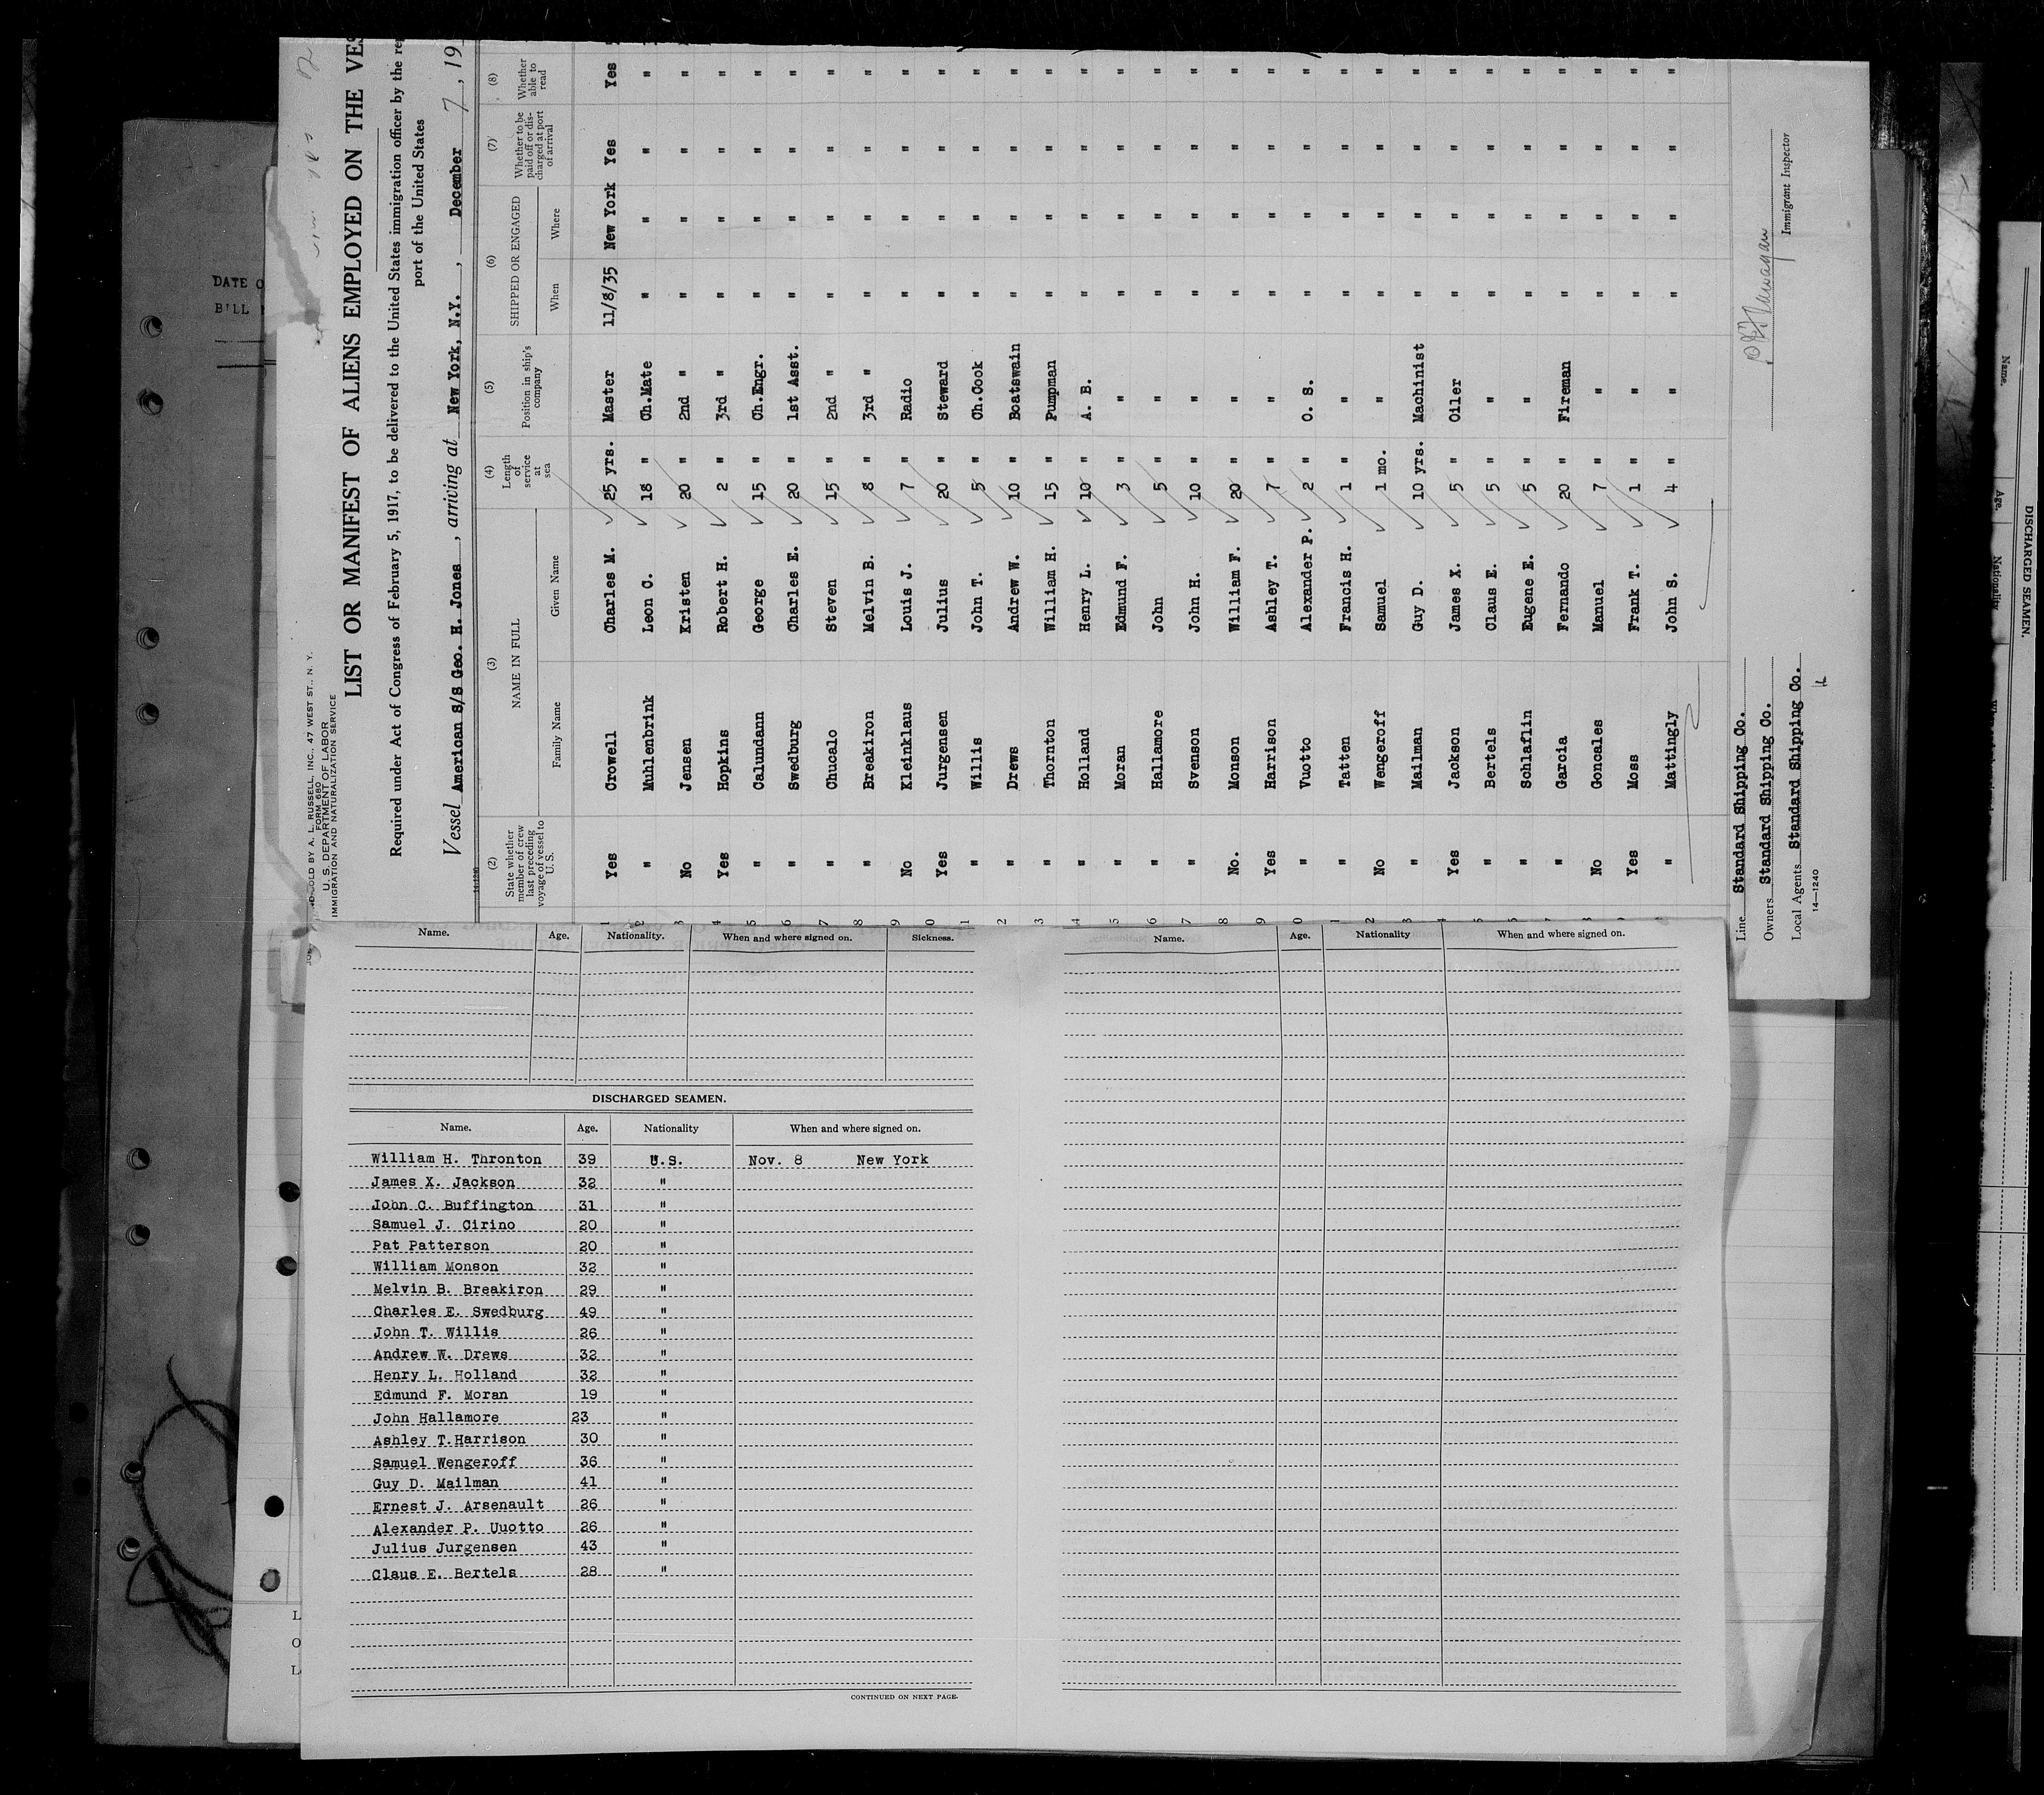 AND SOLD BY A. L. RUSSELL, INC., 47 WEST ST., N. Y.
FORM 680
U. S. DEPARTMENT OF LABOR
IMMIGRATION AND NATURALIZATION SERVICE
LIST OR MANIFEST OF ALIENS EMPLOYED ON THE VES
Required under Act of Congress of February 5, 1917, to be delivered to the United States immigration officer by the re
port of the United States
Vessel American S/S Geo. H. Jones, arriving at New York, N.Y., December 7, 19
(2) (3) (4) (5) (6) (7) (8)
State whether member of crew last preceding voyage of vessel to U. S. NAME IN FULL Length of service at sea Position in ship's company SHIPPED OR ENGAGED Whether to be paid off or discharged at port of arrival Whether able to read
Family Name Given Name When Where
1 Yes Crowell Charles M. 25 yrs. Master 11/8/35 New York Yes Yes
2 " Muhlenbrink Leon C. 18 " Ch.Mate " " " "
3 No Jensen Kristen 20 " 2nd " " " " "
4 Yes Hopkins Robert H. 2 " 3rd " " " " "
5 " Calundann George 15 " Ch.Engr. " " " "
6 " Swedburg Charles E. 20 " 1st Asst. " " " "
7 " Chucalo Steven 15 " 2nd " " " " "
8 " Breakiron Melvin B. 8 " 3rd " " " " "
9 No Kleinklaus Louis J. 7 " Radio " " " "
0 Yes Jurgensen Julius 20 " Steward " " " "
1 " Willis John T. 5 " Ch.Cook " " " "
2 " Drews Andrew W. 10 " Boatswain " " " "
3 " Thornton William H. 15 " Pumpman " " " "
4 " Holland Henry L. 10 " A. B. " " " "
5 " Moran Edmund F. 3 " " " " " "
6 " Hallamore John 5 " " " " " "
7 " Svenson John H. 10 " " " " " "
8 No. Monson William F. 20 " " " " " "
9 Yes Harrison Ashley T. 7 " " " " " "
0 " Vuotto Alexander P. 2 " O. S. " " " "
1 " Tatten Francis H. 1 " " " " " "
2 No Wengeroff Samuel 1 mo. " " " " "
3 " Mailman Guy D. 10 yrs. Machinist " " " "
4 Yes Jackson James X. 5 " Oiler " " " "
5 " Bertels Claus E. 5 " " " " " "
" Schlaflin Eugene E. 5 " " " " " "
" Garcia Fernando 20 " Fireman " " " "
No Goncales Manuel 7 " " " " " "
Yes Moss Frank T. 1 " " " " " "
" Mattingly John S. 4 " " " " " "
Line Standard Shipping Co.
Owners Standard Shipping Co.
Local Agents Standard Shipping Co.
14—1240
Immigrant Inspector
DATE O
BILL
Name. Age. Nationality. When and where signed on. Sickness.
DISCHARGED SEAMEN.
Name. Age. Nationality When and where signed on.
William H. Thronton 39 U.S. Nov. 8 New York
James X. Jackson 32 "
John C. Buffington 31 "
Samuel J. Cirino 20 "
Pat Patterson 20 "
William Monson 32 "
Melvin B. Breakiron 29 "
Charles E. Swedburg 49 "
John T. Willis 26 "
Andrew W. Drews 32 "
Henry L. Holland 32 "
Edmund F. Moran 19 "
John Hallamore 23 "
Ashley T.Harrison 30 "
Samuel Wengeroff 36 "
Guy D. Mailman 41 "
Ernest J. Arsenault 26 "
Alexander P. Uuotto 26 "
Julius Jurgensen 43 "
Claus E. Bertels 28 "
CONTINUED ON NEXT PAGE.
Name. Age. Nationality When and where signed on.
DISCHARGED SEAMEN.
Name. Age. Nationality